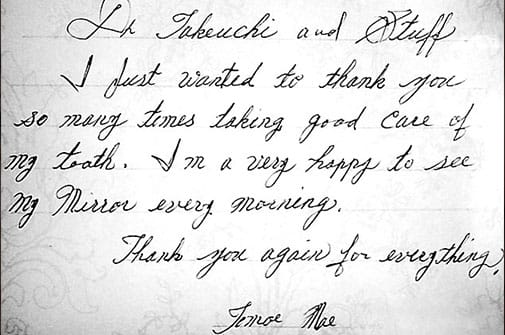 Dr Takeuchi and Stuff
I just wanted to thank you
so many times taking good care of
my tooth. I'm a very happy to see
my Mirror every morning.
Thank you again for everything,
Tomoe Mae